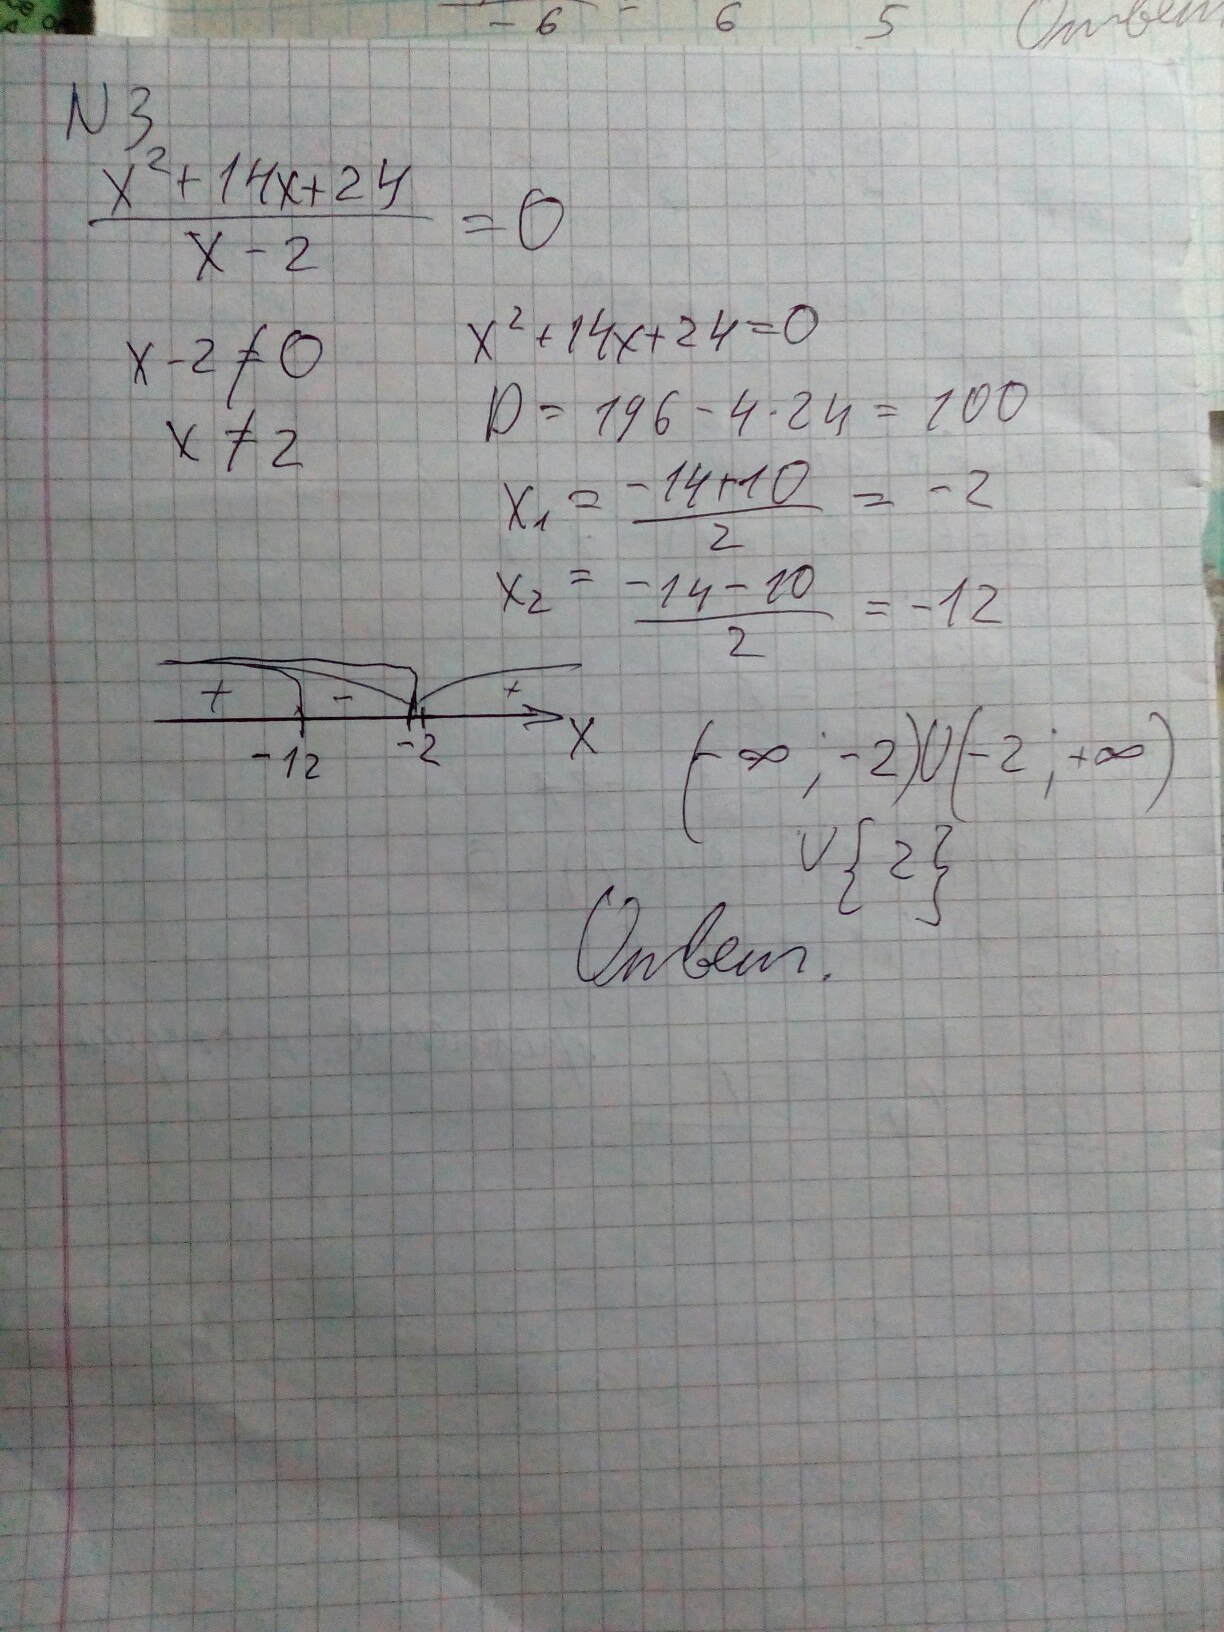 - 6 - 6 5 Ответ
N 3
x² + 14x + 24
x - 2
= 0
x - 2 ≠ 0
x ≠ 2
x² + 14x + 24 = 0
D = 196 - 4 · 24 = 100
x₁ = (-14 + 10) / 2 = -2
x₂ = (-14 - 10) / 2 = -12
+ - +
-12 -2 x
(-∞; -2) ∪ (-2; +∞)
∪ {2}
Ответ.